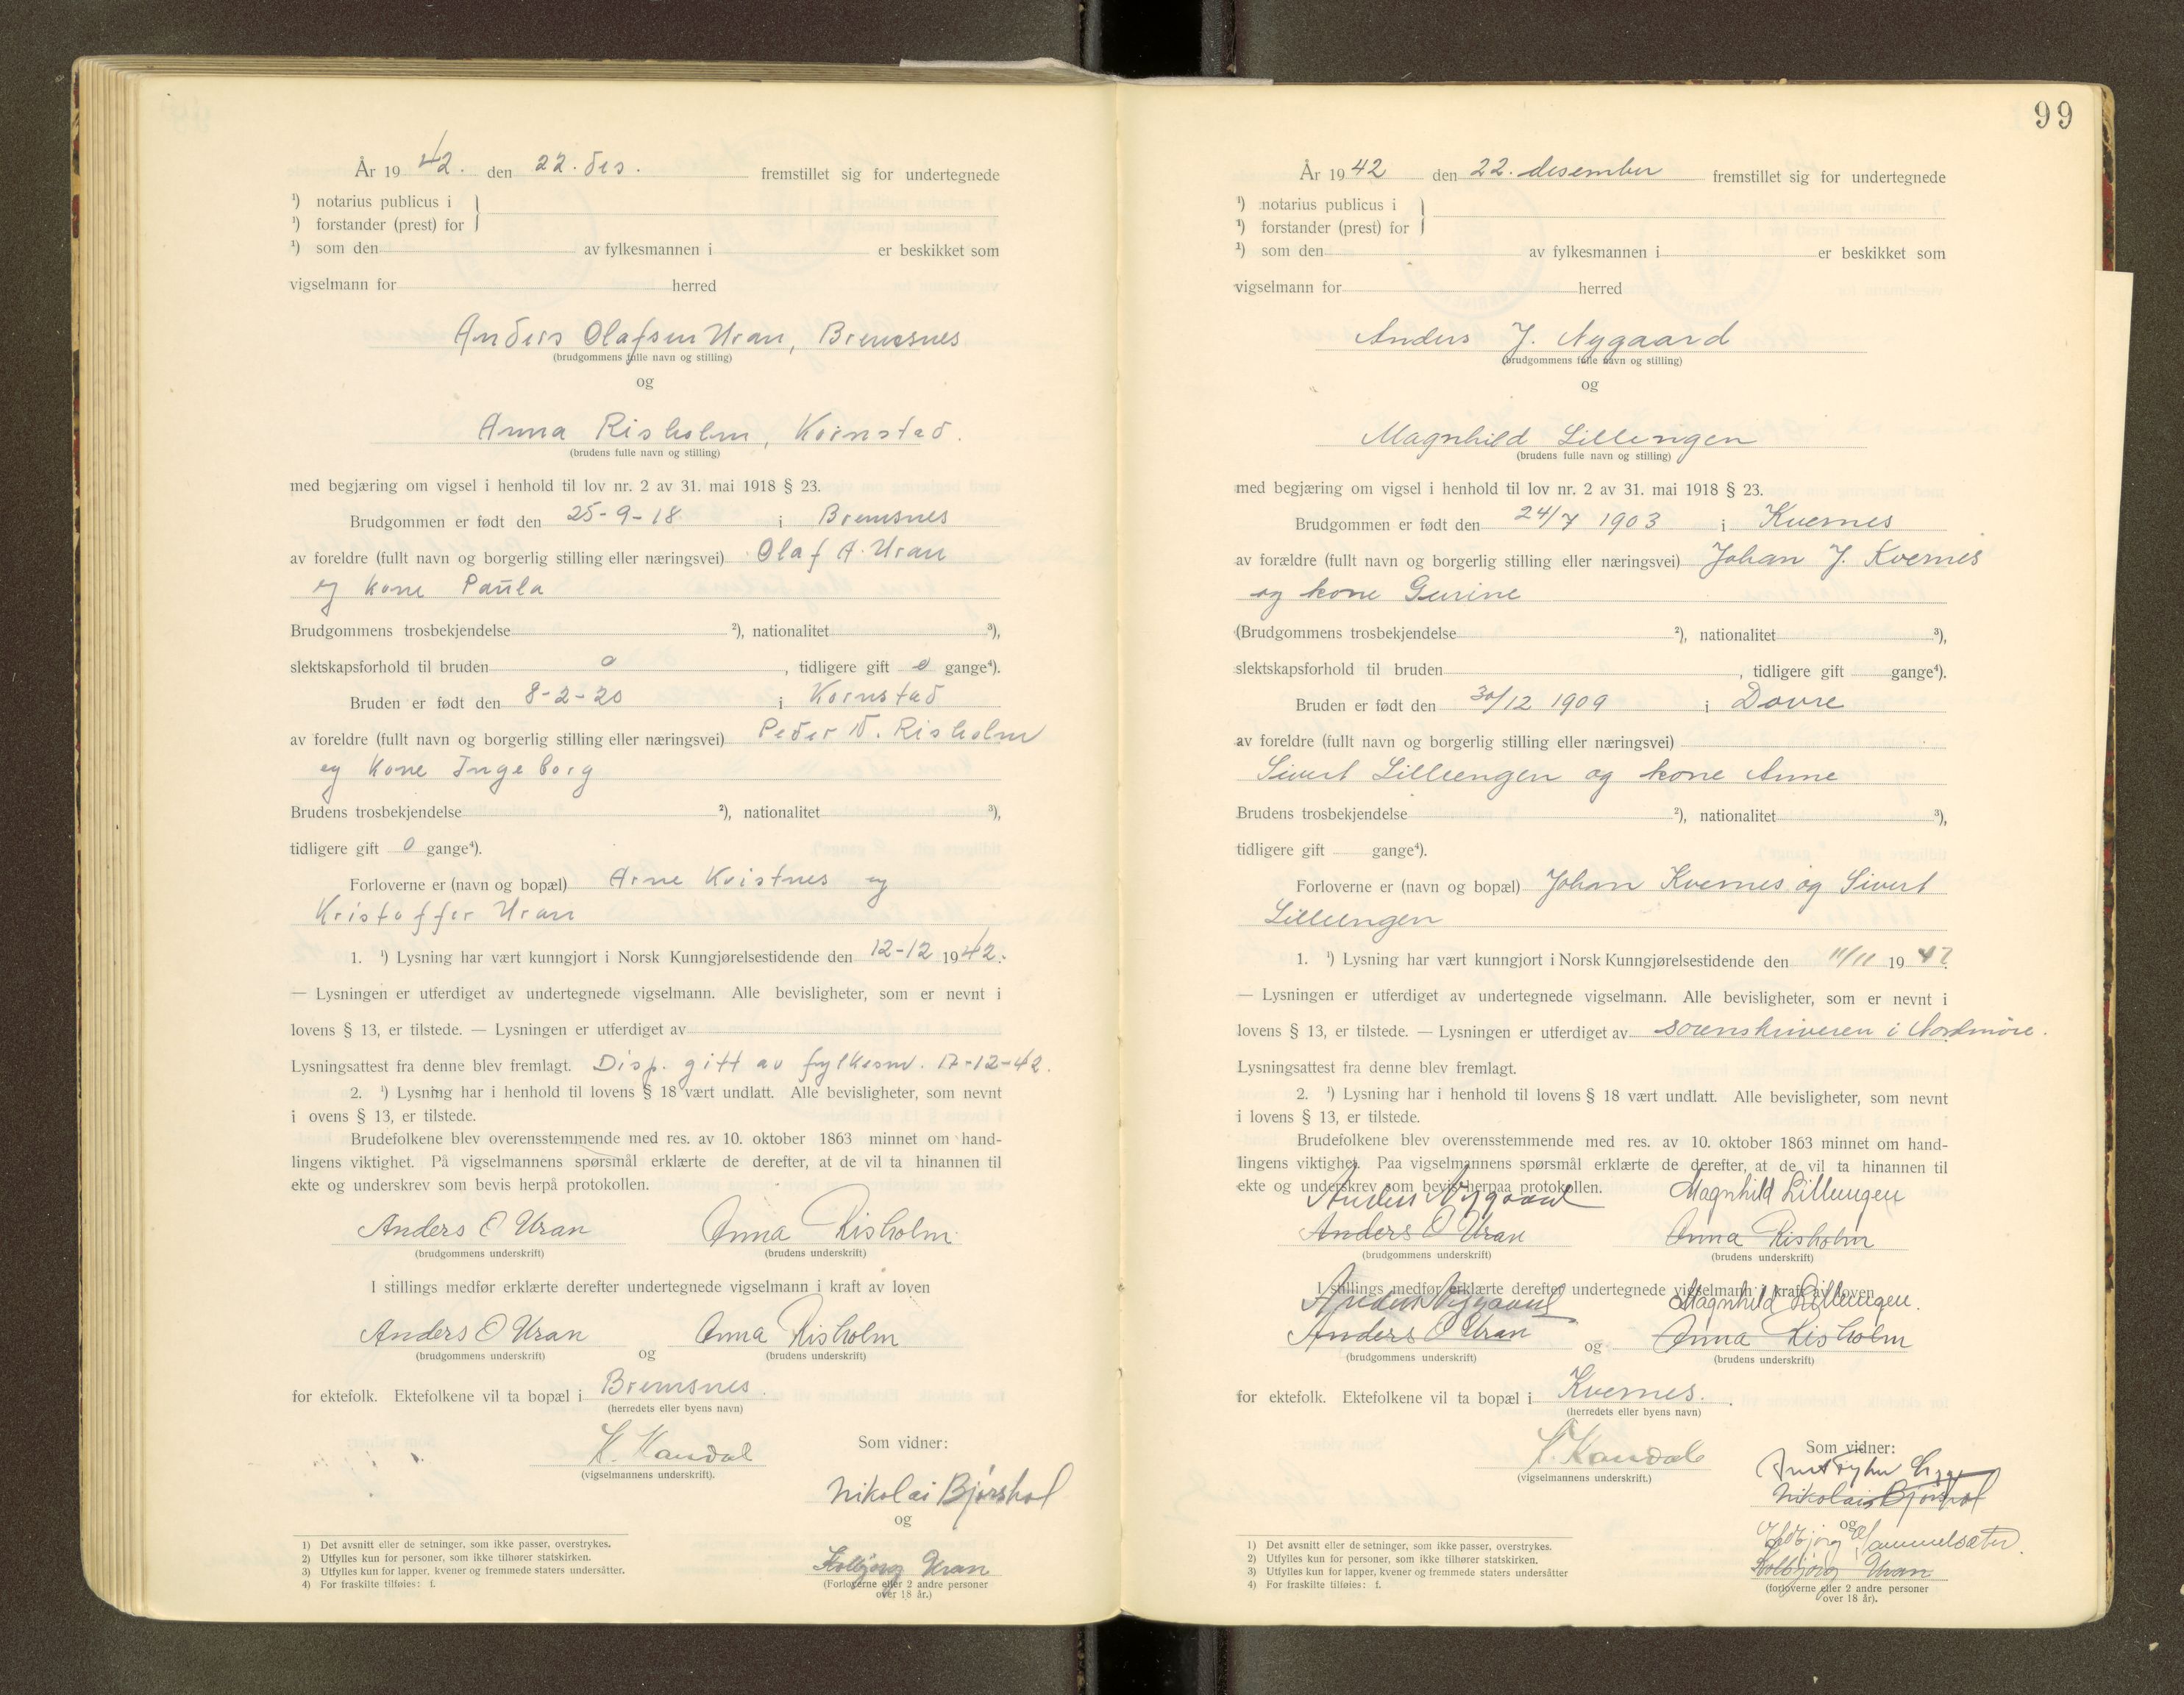 År 1942. den 22. des. fremstillet sig for undertegnede
¹) notarius publicus i
¹) forstander (prest) for
¹) som den av fylkesmannen i er beskikket som
vigselmann for herred
Anders Olafsen Uran, Bremsnes
(brudgommens fulle navn og stilling)
og
Anna Risholm, Kornstad.
(brudens fulle navn og stilling)
med begjæring om vigsel i henhold til lov nr. 2 av 31. mai 1918 § 23.
Brudgommen er født den 25-9-18 i Bremsnes
av foreldre (fullt navn og borgerlig stilling eller næringsvei) Olaf A. Uran
og kone Paula
Brudgommens trosbekjendelse ²), nationalitet ³),
slektskapsforhold til bruden 0, tidligere gift 0 gange⁴).
Bruden er født den 8-2-20 i Kornstad
av foreldre (fullt navn og borgerlig stilling eller næringsvei) Peder N. Risholm
og kone Ingeborg
Brudens trosbekjendelse ²), nationalitet ³),
tidligere gift 0 gange⁴).
Forloverne er (navn og bopæl) Arne Kvistnes og
Kristoffer Uran
1. ¹) Lysning har vært kunngjort i Norsk Kunngjørelsestidende den 12-12 1942.
— Lysningen er utferdiget av undertegnede vigselmann. Alle bevisligheter, som er nevnt i
lovens § 13, er tilstede. — Lysningen er utferdiget av
Lysningsattest fra denne blev fremlagt. Disp. gitt av fylkesm. 17-12-42.
2. ¹) Lysning har i henhold til lovens § 18 vært undlatt. Alle bevisligheter, som nevnt
i ovens § 13, er tilstede.
Brudefolkene blev overensstemmende med res. av 10. oktober 1863 minnet om hand-
lingens viktighet. På vigselmannens spørsmål erklærte de derefter, at de vil ta hinannen til
ekte og underskrev som bevis herpå protokollen.
Anders O Uran Anna Risholm
(brudgommens underskrift) (brudens underskrift)
I stillings medfør erklærte derefter undertegnede vigselmann i kraft av loven
Anders O Uran og Anna Risholm
(brudgommens underskrift) (brudens underskrift)
for ektefolk. Ektefolkene vil ta bopæl i Bremsnes.
(herredets eller byens navn)
K. Kandal
(vigselmannens underskrift).
Som vidner:
Nikolai Bjørshol
og
Kolbjørg Uran
(Forloverne eller 2 andre personer
over 18 år.)
1) Det avsnitt eller de setninger, som ikke passer, overstrykes.
2) Utfylles kun for personer, som ikke tilhører statskirken.
3) Utfylles kun for lapper, kvener og fremmede staters undersåtter.
4) For fraskilte tilføies: f.
99
År 1942 den 22. desember fremstillet sig for undertegnede
¹) notarius publicus i
¹) forstander (prest) for
¹) som den av fylkesmannen i er beskikket som
vigselmann for herred
Anders J. Nygaard
(brudgommens fulle navn og stilling)
og
Magnhild Lillengen
(brudens fulle navn og stilling)
med begjæring om vigsel i henhold til lov nr. 2 av 31. mai 1918 § 23.
Brudgommen er født den 24/7 1903 i Kvernes
av forældre (fullt navn og borgerlig stilling eller næringsvei) Johan J. Kvernes
og kone Gurine
(Brudgommens trosbekjendelse ²), nationalitet ³),
slektskapsforhold til bruden , tidligere gift gange⁴).
Bruden er født den 30/12 1909 i Dovre
av foreldre (fullt navn og borgerlig stilling eller næringsvei)
Sivert Lilleengen og kone Anne
Brudens trosbekjendelse ²), nationalitet ³),
tidligere gift gange⁴).
Forloverne er (navn og bopæl) Johan Kvernes og Sivert
Lilleengen
1. ¹) Lysning har vært kunngjort i Norsk Kunngjørelsestidende den 11/11 1942.
— Lysningen er utferdiget av undertegnede vigselmann. Alle bevisligheter, som er nevnt i
lovens § 13, er tilstede. — Lysningen er utferdiget av sorenskriveren i Nordmøre.
Lysningsattest fra denne blev fremlagt.
2. ¹) Lysning har i henhold til lovens § 18 vært undlatt. Alle bevisligheter, som nevnt
i lovens § 13, er tilstede.
Brudefolkene blev overensstemmende med res. av 10. oktober 1863 minnet om hand-
lingens viktighet. Paa vigselmannens spørsmål erklærte de derefter, at de vil ta hinannen til
ekte og underskrev som bevis herpaa protokollen.
Anders Nygaard Magnhild Lillengen
Anders O Uran Anna Risholm
(brudgommens underskrift) (brudens underskrift)
I stillings medfør erklærte derefter undertegnede vigselmann i kraft av loven
Anders Nygaard Magnhild Lillengen.
Anders O Uran og Anna Risholm
(brudgommens underskrift) (brudens underskrift)
for ektefolk. Ektefolkene vil ta bopæl i Kvernes.
(herredets eller byens navn)
K. Kandal
(vigselmannens underskrift.)
Som vidner:
Nikolai Bjørshol
og
Kolbjørg Uran
(forloverne eller 2 andre personer
over 18 år).
1) Det avsnitt eller de setninger, som ikke passer, overstrykes.
2) Utfylles kun for personer, som ikke tilhører statskirken.
3) Utfylles kun for lapper, kvener og fremmede staters undersåtter
4) For fraskilte tilføies: f.